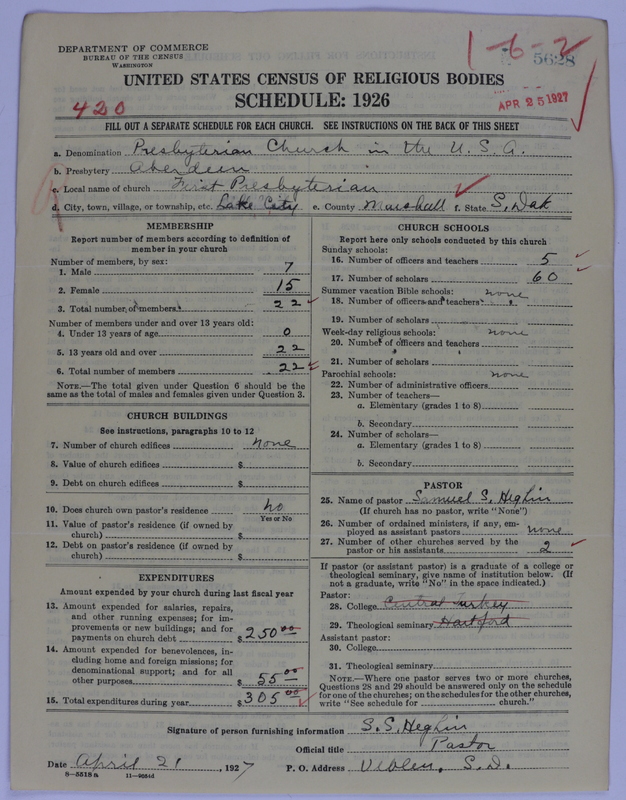 DEPARTMENT OF COMMERCE
BUREAU OF THE CENSUS
WASHINGTON
1-6-2
5628
UNITED STATES CENSUS OF RELIGIOUS BODIES
SCHEDULE: 1926
420
APR 25 1927
FILL OUT A SEPARATE SCHEDULE FOR EACH CHURCH. SEE INSTRUCTIONS ON THE BACK OF THIS SHEET
a. Denomination Presbyterian Church in the U. S. A.
b. Presbytery Aberdeen
c. Local name of church First Presbyterian
d. City, town, village, or township, etc. Lake City e. County Marshall f. State S. Dak
MEMBERSHIP
Report number of members according to definition of
member in your church
Number of members, by sex:
1. Male 7
2. Female 15
3. Total number of members 22
Number of members under and over 13 years old:
4. Under 13 years of age 0
5. 13 years old and over 22
6. Total number of members 22
NOTE.—The total given under Question 6 should be the
same as the total of males and females given under Question 3.
CHURCH BUILDINGS
See instructions, paragraphs 10 to 12
7. Number of church edifices none
8. Value of church edifices $
9. Debt on church edifices $
10. Does church own pastor's residence no
Yes or No
11. Value of pastor's residence (if owned by
church) $
12. Debt on pastor's residence (if owned by
church) $
EXPENDITURES
Amount expended by your church during last fiscal year
13. Amount expended for salaries, repairs,
and other running expenses; for im-
provements or new buildings; and for
payments on church debt $250 00
14. Amount expended for benevolences, in-
cluding home and foreign missions; for
denominational support; and for all
other purposes $55 00
15. Total expenditures during year $305 00
CHURCH SCHOOLS
Report here only schools conducted by this church
Sunday schools:
16. Number of officers and teachers 5
17. Number of scholars 60
Summer vacation Bible schools: none
18. Number of officers and teachers
19. Number of scholars
Week-day religious schools: none
20. Number of officers and teachers
21. Number of scholars
Parochial schools: none
22. Number of administrative officers
23. Number of teachers—
a. Elementary (grades 1 to 8)
b. Secondary
24. Number of scholars—
a. Elementary (grades 1 to 8)
b. Secondary
PASTOR
25. Name of pastor Samuel S. Heghin
(If church has no pastor, write "None")
26. Number of ordained ministers, if any, em-
ployed as assistant pastors none
27. Number of other churches served by the
pastor or his assistants 2
If pastor (or assistant pastor) is a graduate of a college or
theological seminary, give name of institution below. (If
not a graduate, write "No" in the space indicated.)
Pastor:
28. College Central Turkey
29. Theological seminary Hartford
Assistant pastor:
30. College
31. Theological seminary
NOTE.—Where one pastor serves two or more churches,
Questions 28 and 29 should be answered only on the schedule
for one of the churches; on the schedules for the other churches,
write "See schedule for ______ church."
Signature of person furnishing information S. S. Heghin
Official title Pastor
Date April 21, 1927 P. O. Address Veblen, S. D.
8—5518 a